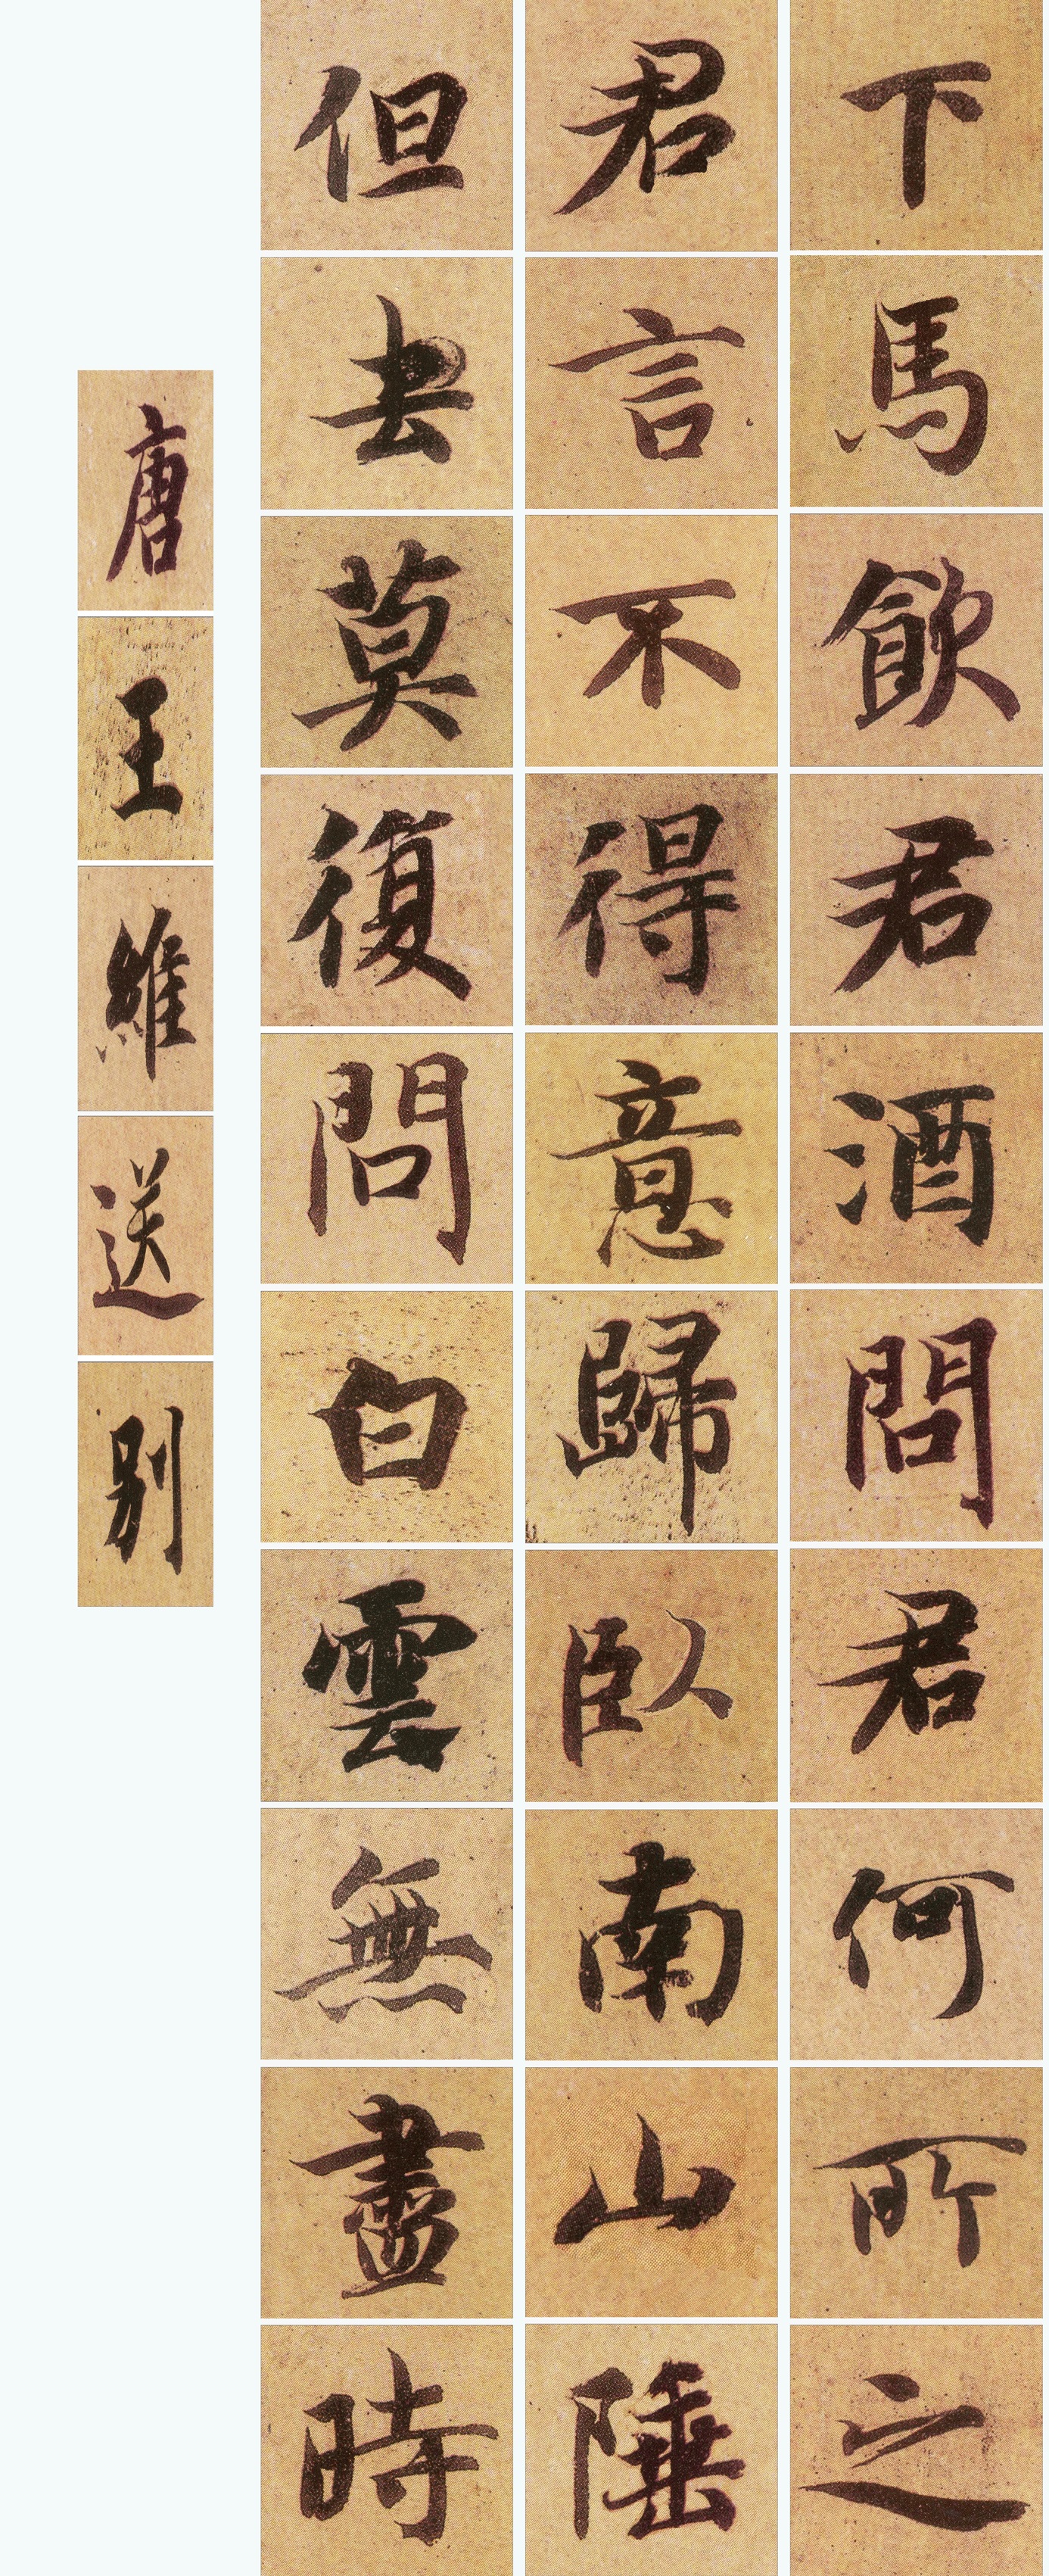 下馬飲君酒問君何所之
君言不得意歸臥南山陲
但去莫復問白雲無盡時
唐王維送別